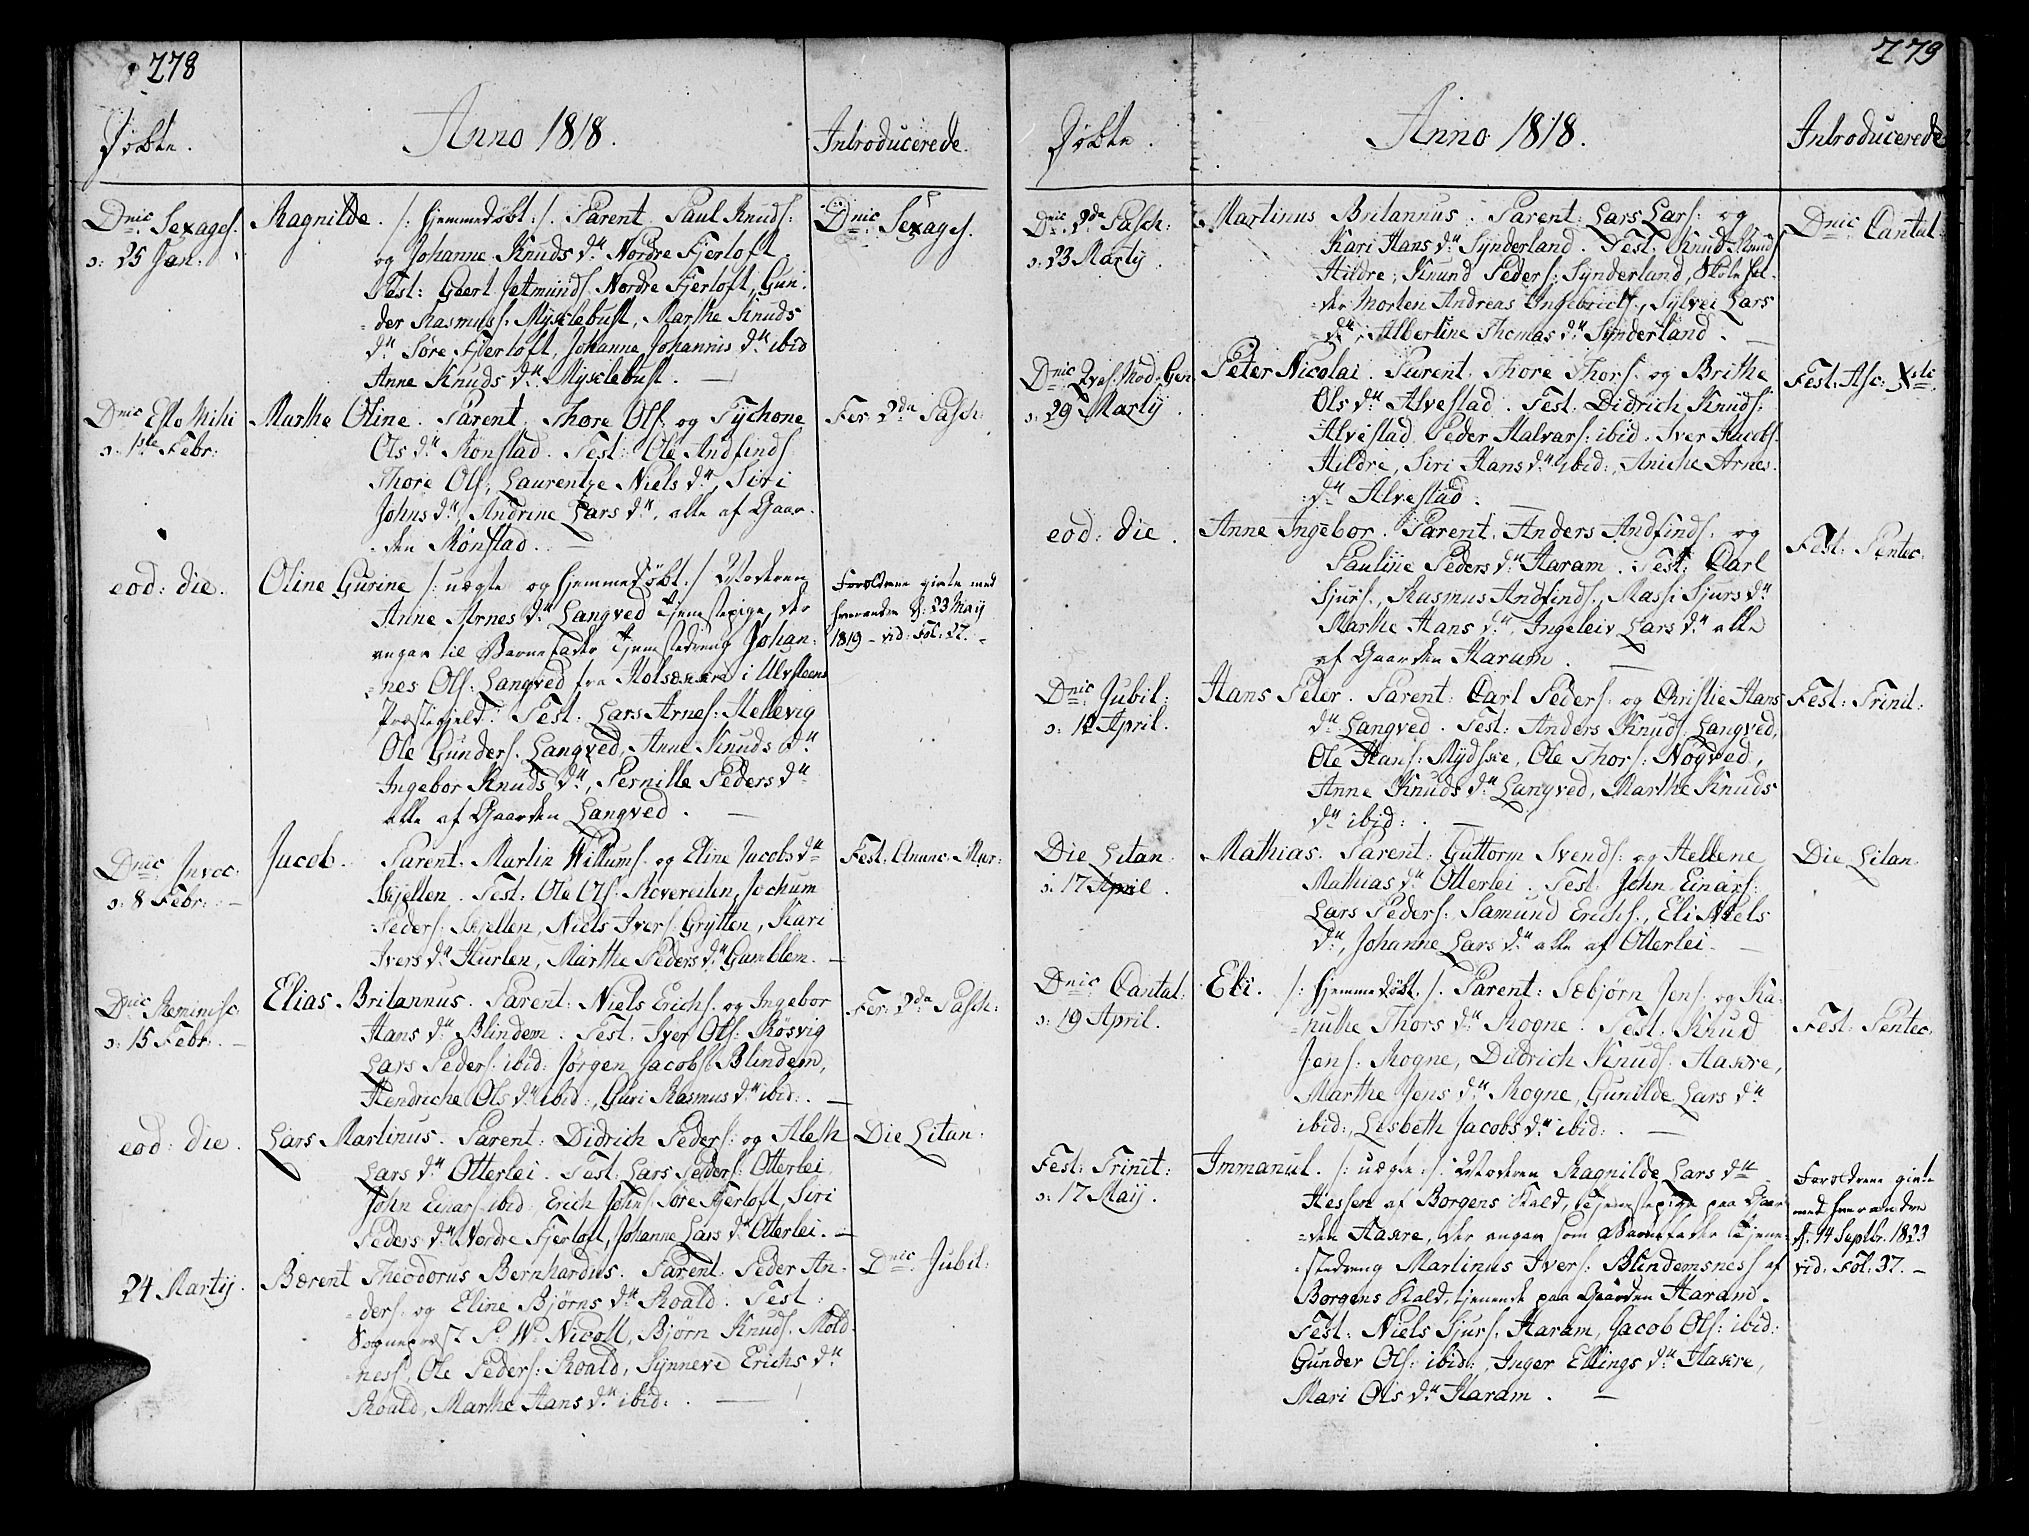 278
Døbte.
Anno 1818.
Introducerede.
Dnic: Sexages.
ɔ: 25 Jan:
Ragnilde. /: hjemmedøbt :/. Parent. Paul Knuds:
og Johanne Knuds dtr Nordre Fjerloft.
Test: Geert Jetmunds. Nordre Fjerloft, Gun-
der Rasmuss. Myschlebust, Marthe Knuds
dtr Søre Fjerloft, Johanne Johannis dtr ibid
Anne Knuds dtr Myschlebust. —
Dnic: Sexages.
Dnic Esto Mihi
ɔ: 1ste Febr:
Marthe Oline. Parent. Thore Ols: og Tychone
Ols dtr Rønstad. Test: Ole Andfinds
Thore Ols:, Laurentze Niels dtr, Siri
Johns dtr, Andrine Lars dtr, alle af Gaar-
den Rønstad. —
Fer: 2da Pasch:
eod: die.
Oline Gurine /: uægte og hjemmedøbt :/ Moderen
Anne Arnes dtr Langved Tjenestepige, der
angav til Barnefader Tjenestedreng Johan-
nes Ols: Langved fra i Ulvsteens
Præstegield. Test: Lars Arnes: Hellevig
Ole Gunders. Langved, Anne Knuds dtr
Ingebor Knuds dtr, Pernille Peders dtr
alle af Gaarden Langved. —
Forældrene givte med
hverandre d: 23 Maij
1819 — vid: Fol: 27. —
Dnic Invoc:
ɔ: 8 Febr: —
Jacob. Parent. Martin Willums. og Eline Jacobs dtr
Skjellen. Test: Ole Ols: Rovereiten, Jochum
Peders. Skjellen, Niels Ivers: Grytten, Kari
Ivers dtr Hurlen, Marthe Peders dtr Gamblem. —
Fest: Anunc: Mar:
Dnic Reminisc:
ɔ: 15 Febr. —
Elias Britannus. Parent: Niels Erichs. og Ingebor
Hans dtr Blindem. Test. Iver Ols: Røsvig
Lars Peders: ibid: Jørgen Jacobs: Blindem,
Hendriche Ols dtr ibid:, Guri Rasmus dtr ibid: —
Fer: 2da Pasch:
eod: die.
Lars Martinus. Parent: Didrich Peders: og Aleth
Lars dtr Otterlei. Test. Lars Peders: Otterlei
John Einars. ibid. Erich Johns: Søre Fjerloft, Siri
Peders dtr Nordre Fjerloft, Johanne Lars dtr Otterlei. —
Die Litan:
24 Martij.
Bærent Theodorus Bernhardus. Parent. Peder An-
ders. og Eline Bjørns dtr Roald. Test:
Sognepræst P. W. Nicoll, Bjørn Knuds. Mold-
ness, Ole Peders: Roald, Synneve Erichs dtr
Roald, Marthe Hans dtr ibid: —
Dnic: Jubil:
279
Døbte.
Anno 1818.
Introducerede
Dnic. 2da Pasch:
ɔ: 23 Martij.
Martinus Britannus. Parent: Lars Lars: og
Kari Hans dtr Synderland. Test: Knud Knuds
Hildre, Knud Peders: Synderland, Skolehol-
der Morten Andreas Ingebrictss., Sylvei Lars
dtr, Albertine Thomas dtr Synderland. —
Dnic Cantat.
Dnic: Qvas. Mod. Gen
ɔ: 29 Martij.
Peter Nicolai. Parent. Thore Thors: og Brithe
Ols dtr Alvestad. Test. Didrich Knuds:
Alvestad, Peder Halvars: ibid. Iver Jacobs.
Hildre, Siri Hans dtr ibid:, Aniche Arnes-
dtr Alvestad. —
Fest: Asc: Xstc
eod: die.
Anne Ingebor. Parent. Anders Andfinds. og
Pauline Peders dtr Haram. Test: Carl
Sjurs., Rasmus Andfinds., Massi Sjurs dtr
Marthe Hans dtr, Ingeleiv Lars dtr alle
af Gaarden Haram. —
Fest: Pentec:
Dnic: Jubil:
ɔ: 12 April.
Hans Peter. Parent: Carl Peders: og Christie Hans
dtr Langved. Test: Anders Knuds: Langved,
Ole Hans: Mydske, Ole Thors: Nogved,
Anne Knuds dtr Langved, Marthe Knuds
dtr ibid: —
Fest: Trinit:
Die Litan:
ɔ: 17 April.
Mathias. Parent: Guttorm Svends: og Hellene
Mathias dtr Otterlei. Test. John Einars:
Lars Peders: Samund Erichs., Eli Niels
dtr, Johanne Lars dtr alle af Otterlei. —
Die Litan:
Dnic: Cantat:
ɔ: 19 April.
Eli. /: hjemmedøbt :/. Parent: Sæbjørn Jens: og Ra-
nuthe Thors dtr Rogne. Test. Knud
Jens: Rogne, Didrich Knuds: Haskre,
Marthe Jens dtr Rogne, Gunilde Lars dtr
ibid:, Lisbeth Jacobs dtr ibid: —
Fest: Pentec:
Fest: Trinit:
ɔ: 17 Maij.
Immanul. /: uægte :/. Moderen Ragnilde Lars dtr
Hessen af Borgens Kald, Tjenestepige paa Gaar-
den Haskre, der angav som Barnefader Tjene-
stedreng Martinus Ivers: Blindemsness af
Borgens Kald, tjenende paa Gaarden Haram.
Test: Niels Sjurs. Haram, Jacob Ols: ibid:
Gunder Ols: ibid:, Inger Ellings dtr Haskre,
Mari Ols dtr Haram. —
Forældrene givte
med hverandre
d. 14 Septbr. 1823
vid: Fol: 37. —